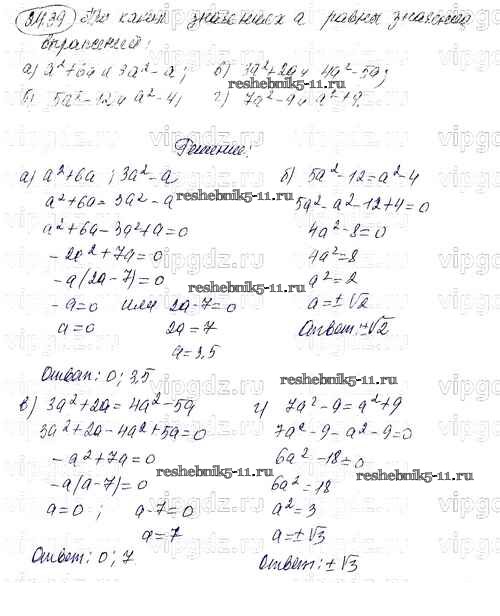 24.39 При каких значениях a равны значения
выражений:
а) a²+6a и 3a²-a; в) 3a²+2a и 4a²-5a;
б) 5a²-12 и a²-4; г) 7a²-9 и a²+9.
reshebnik5-11.ru
Решение:
а) a²+6a ; 3a²-a
a²+6a = 3a²-a
a²+6a-3a²+a=0
-2a²+7a=0
-a(2a-7)=0
-a=0 или 2a-7=0
a=0 2a=7
a=3,5
Ответ: 0; 3,5
б) 5a²-12=a²-4
5a²-a²-12+4=0
4a²-8=0
4a²=8
a²=2
a=±√2
Ответ: ±√2
reshebnik5-11.ru
reshebnik5-11.ru
reshebnik5-11.ru
в) 3a²+2a=4a²-5a
3a²+2a-4a²+5a=0
-a²+7a=0
-a(a-7)=0
a=0 ; a-7=0
a=7
Ответ: 0; 7
г) 7a²-9=a²+9
7a²-9-a²-9=0
6a²-18=0
6a²=18
a²=3
a=±√3
Ответ: ±√3
reshebnik5-11.ru
vipgdz.ru